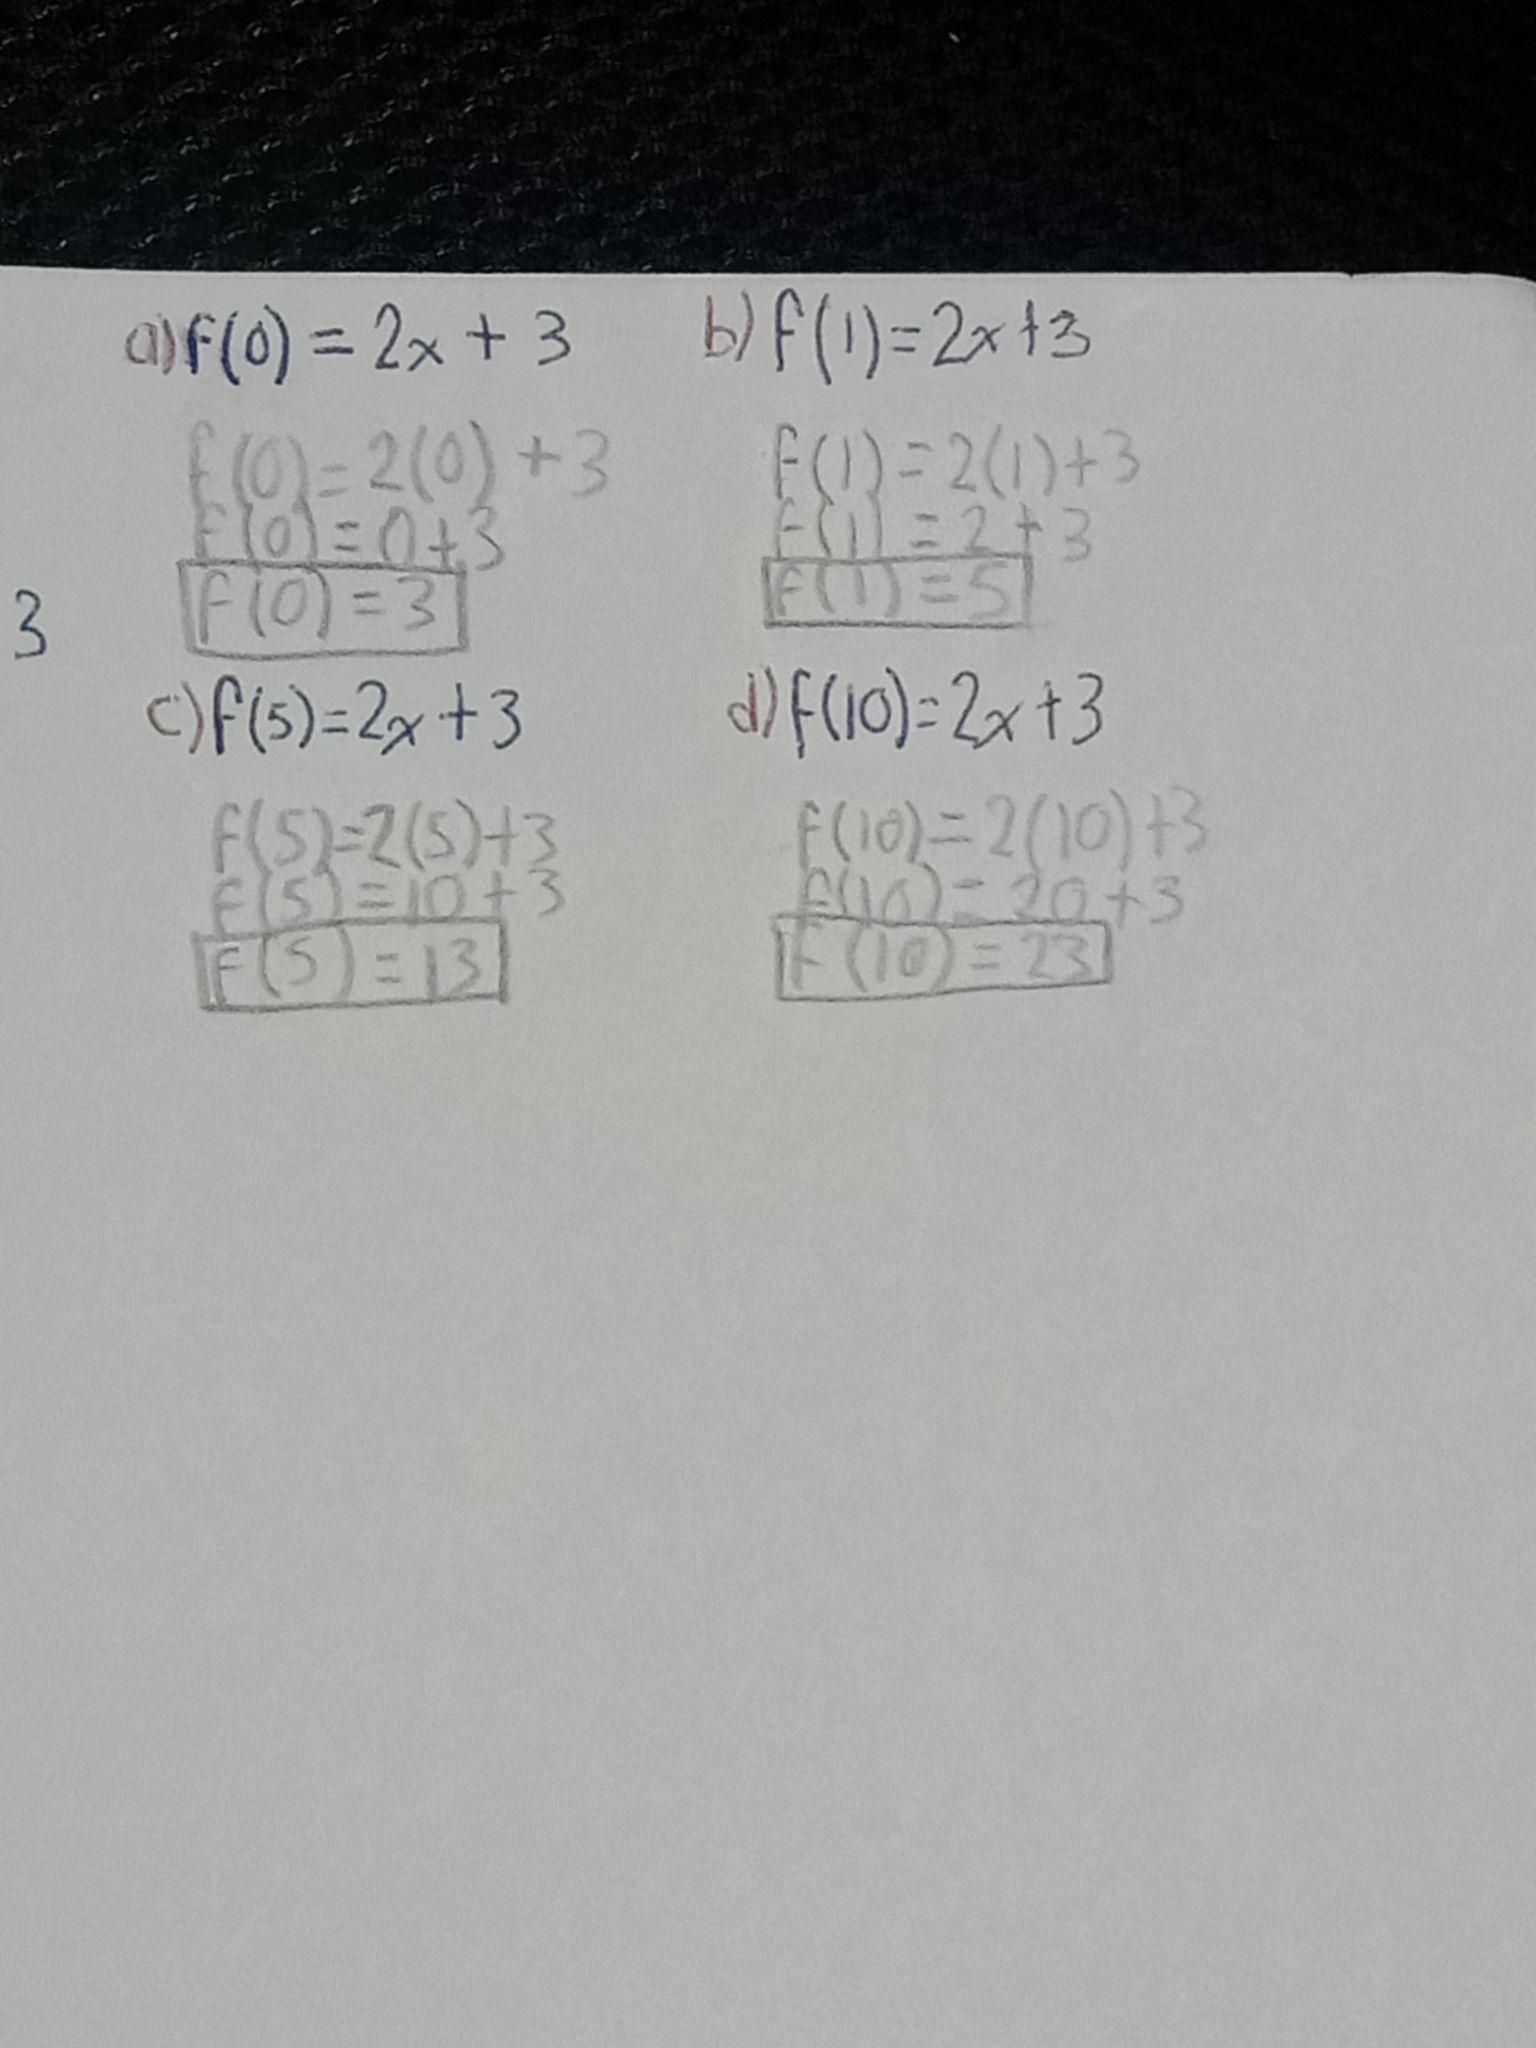 a) f(0) = 2x + 3
f(0) = 2(0) + 3
f(0) = 0+3
f(0) = 3
b) f(1)=2x+3
f(1) = 2(1)+3
f(1) = 2+3
f(1) = 5
3
c) f(5)=2x+3
f(5)=2(5)+3
f(5)=10+3
f(5) = 13
d) f(10)=2x+3
f(10)=2(10)+3
f(10)= 20+3
f(10) = 23